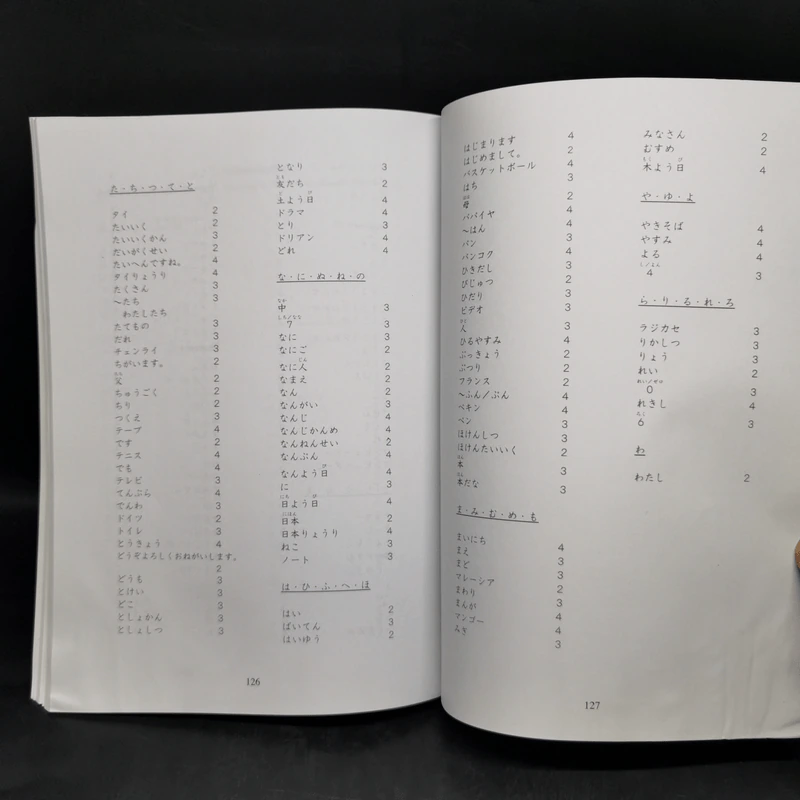 た・ち・つ・て・と
タイ 2
たいいく 2
たいいくかん 3
だいがくせい 2
たいへんですね。 4
タイりょうり 4
たくさん 3
～たち 3
わたしたち
たてもの 3
だれ 3
チェンライ 2
ちがいます。 2
ちち
父 2
ちゅうごく 2
ちり 2
つくえ 3
テープ 4
です 2
テニス 4
でも 4
テレビ 3
てんぷら 4
でんわ 3
ドイツ 2
トイレ 3
とうきょう 4
どうぞよろしくおねがいします。
2
どうも 3
とけい 3
どこ 3
としょかん 3
としょしつ 3
となり 3
とも
友だち 2
ど び
土よう日 4
ドラマ 4
とり 3
ドリアン 4
どれ 4
な・に・ぬ・ね・の
なか
中 3
しち/なな
7 3
なに 3
なにご 2
じん
なに人 2
なまえ 2
なん 2
なんがい 3
なんじ 4
なんじかんめ 4
なんねんせい 2
なんぷん 4
び
なんよう日 4
に 3
にち び
日よう日 4
にほん
日本 2
日本りょうり 4
ねこ 3
ノート 3
は・ひ・ふ・へ・ほ
はい 2
ばいてん 3
はいゆう 2
126
はじまります 4
はじめまして。 2
バスケットボール 4
はち 3
はは
母 2
パパイヤ 4
～はん 4
パン 3
バンコク 4
ひきだし 3
びじゅつ 2
ひだり 3
ビデオ 3
ひと
人 3
ひるやすみ 4
ぶっきょう 2
ぶつり 2
フランス 2
～ふん/ぷん 4
ペキン 4
ペン 3
ほけんしつ 3
ほけんたいいく 2
ほん
本 3
ほん
本だな 3
ま・み・む・め・も
まいにち 4
まえ 3
まど 3
マレーシア 2
まわり 3
まんが 4
マンゴー 4
みぎ 3
みなさん 2
むすめ 2
もく び
木よう日 4
や・ゆ・よ
やきそば 4
やすみ 4
よる 4
し/よん
4 3
ら・り・る・れ・ろ
ラジカセ 3
りかしつ 3
りょう 3
れい 2
れい/ゼロ
0 3
れきし 4
ろく
6 3
わ
わたし 2
127